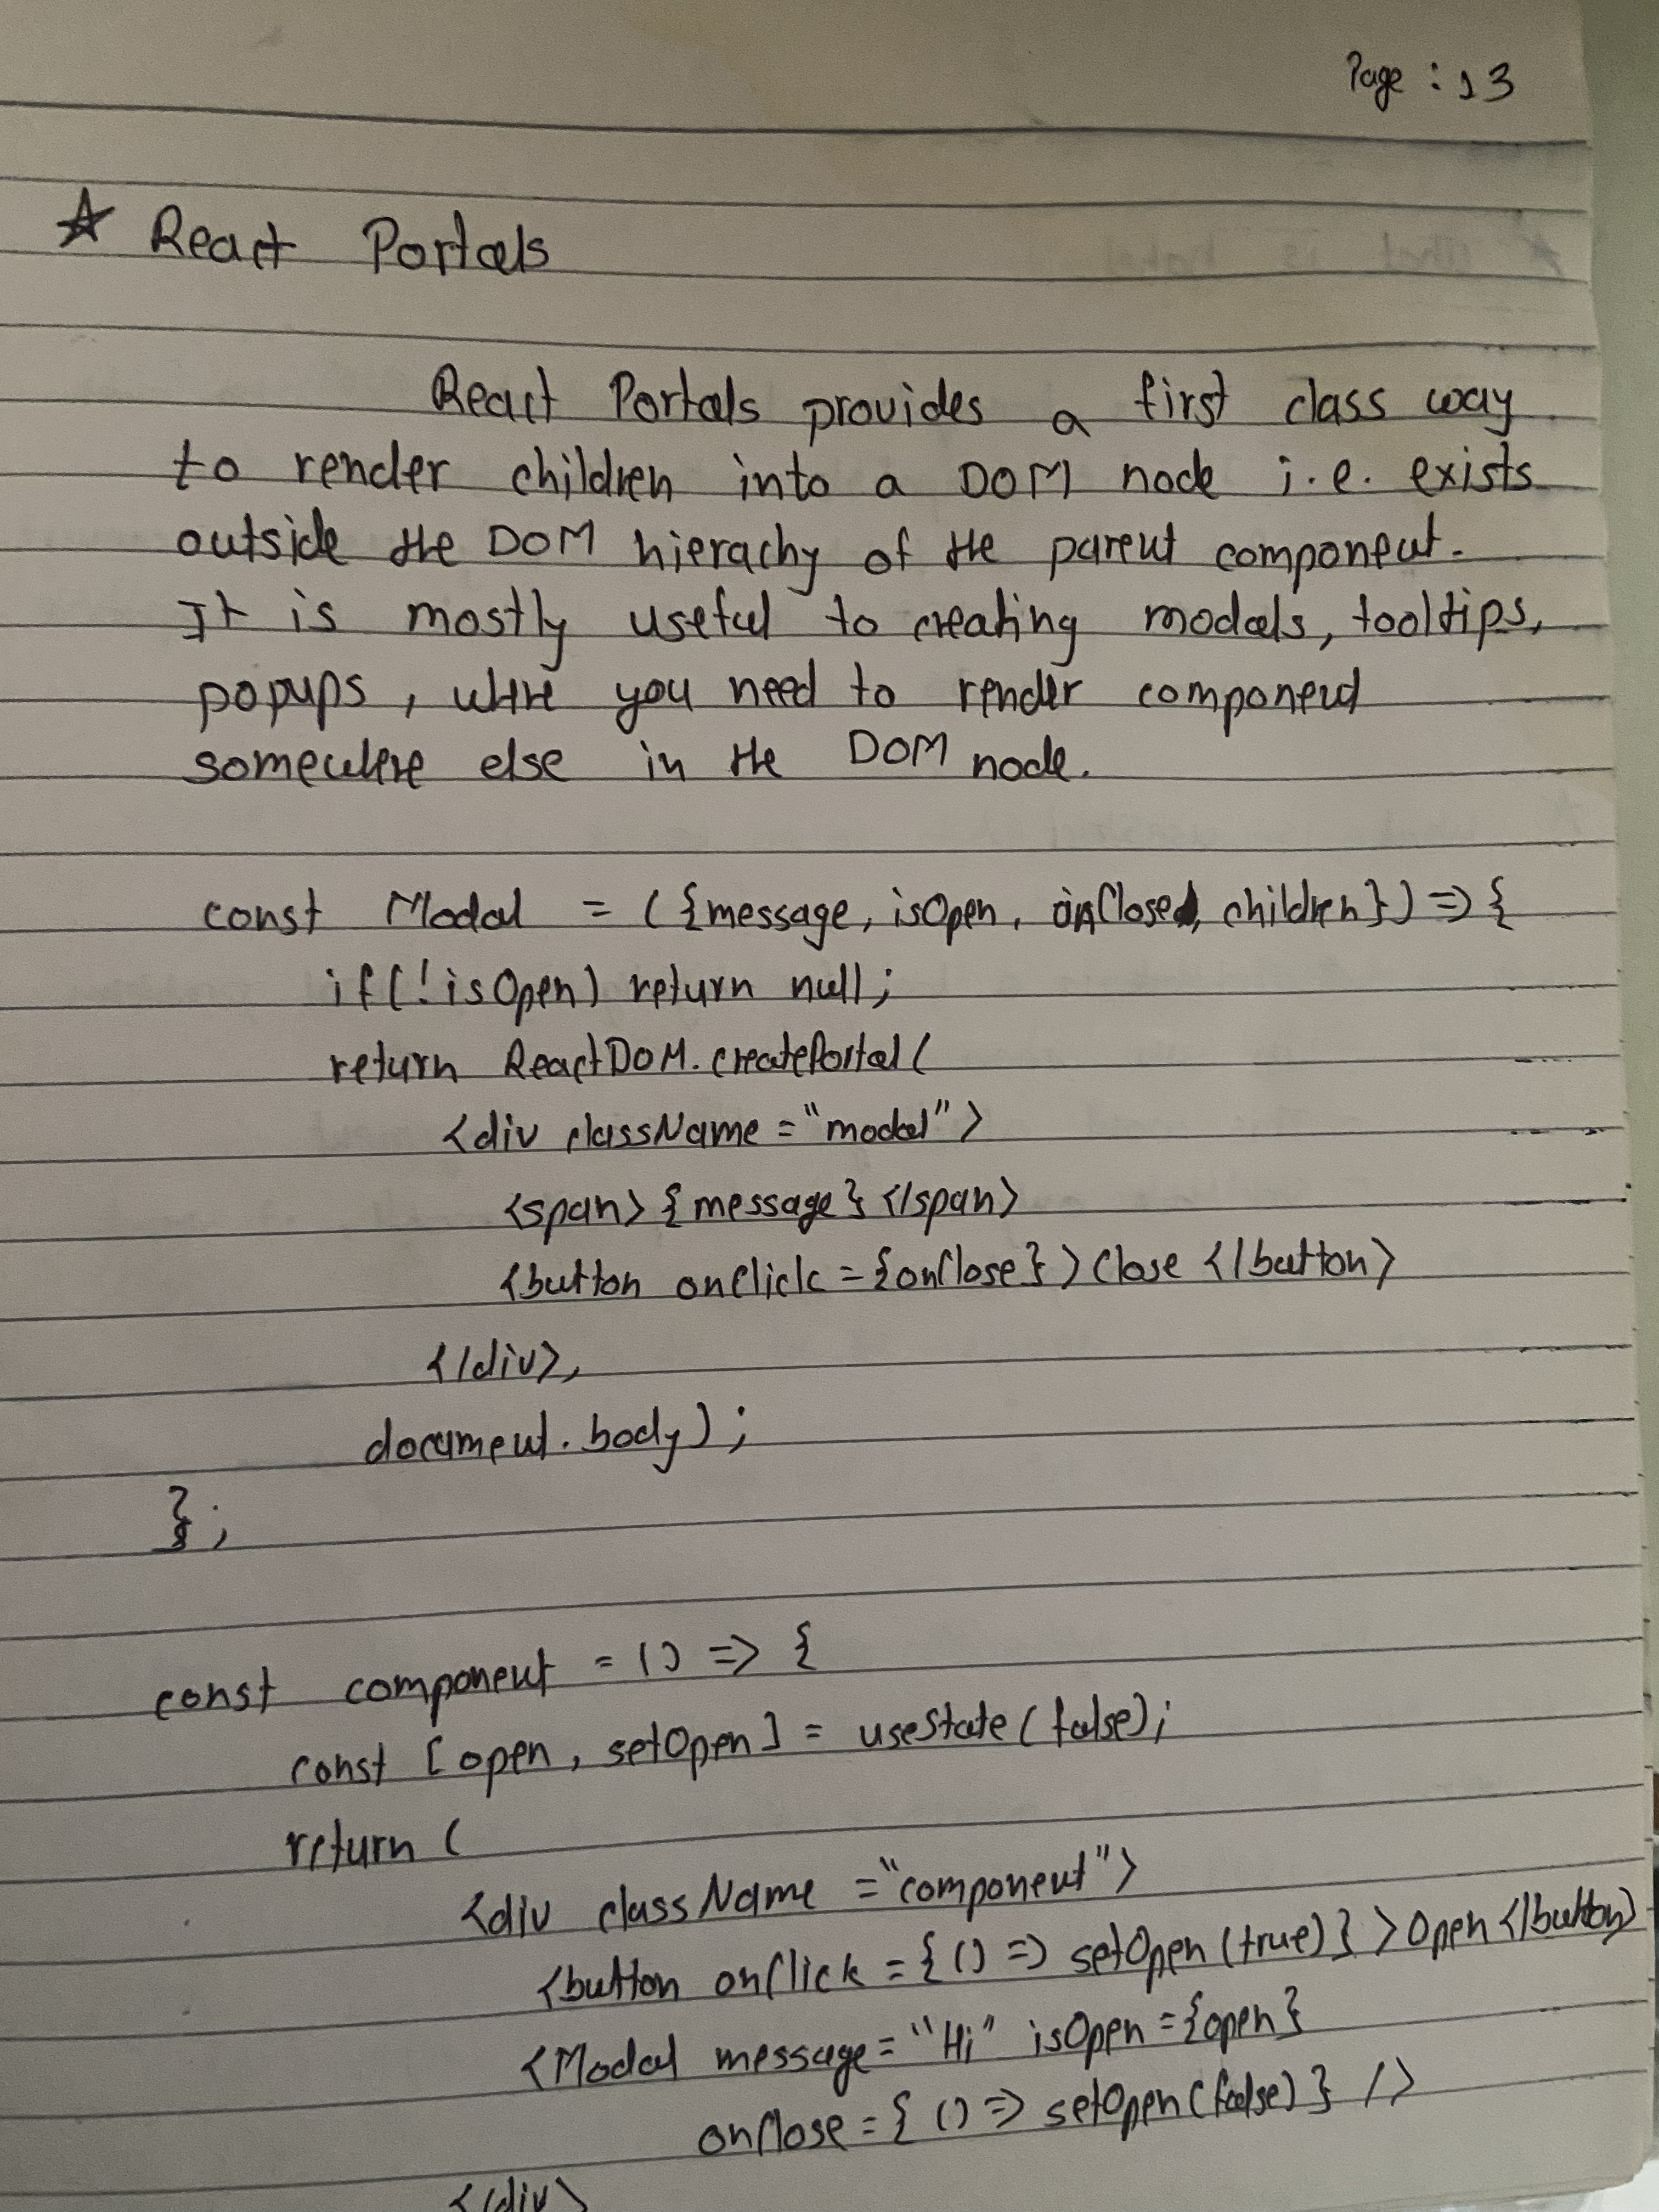 Page : 13
☆ React Portals
React Portals provides a first class way
to render children into a DOM node i.e. exists
outside the DOM hierachy of the parent component.
It is mostly useful to creating modals, tooltips,
popups, where you need to render component
somewhere else in the DOM node.
const Modal = ({message, isOpen, onClose, children}) => {
if(!isOpen) return null;
return ReactDOM.createPortal(
<div className="modal">
<span>{message}</span>
<button onClick={onClose}>Close</button>
</div>,
document.body);
};
const component = () => {
const [open, setOpen] = useState(false);
return (
<div className="component">
<button onClick={() => setOpen(true)}>Open</button>
<Modal message="Hi" isOpen={open}
onClose={() => setOpen(false)} />
</div>